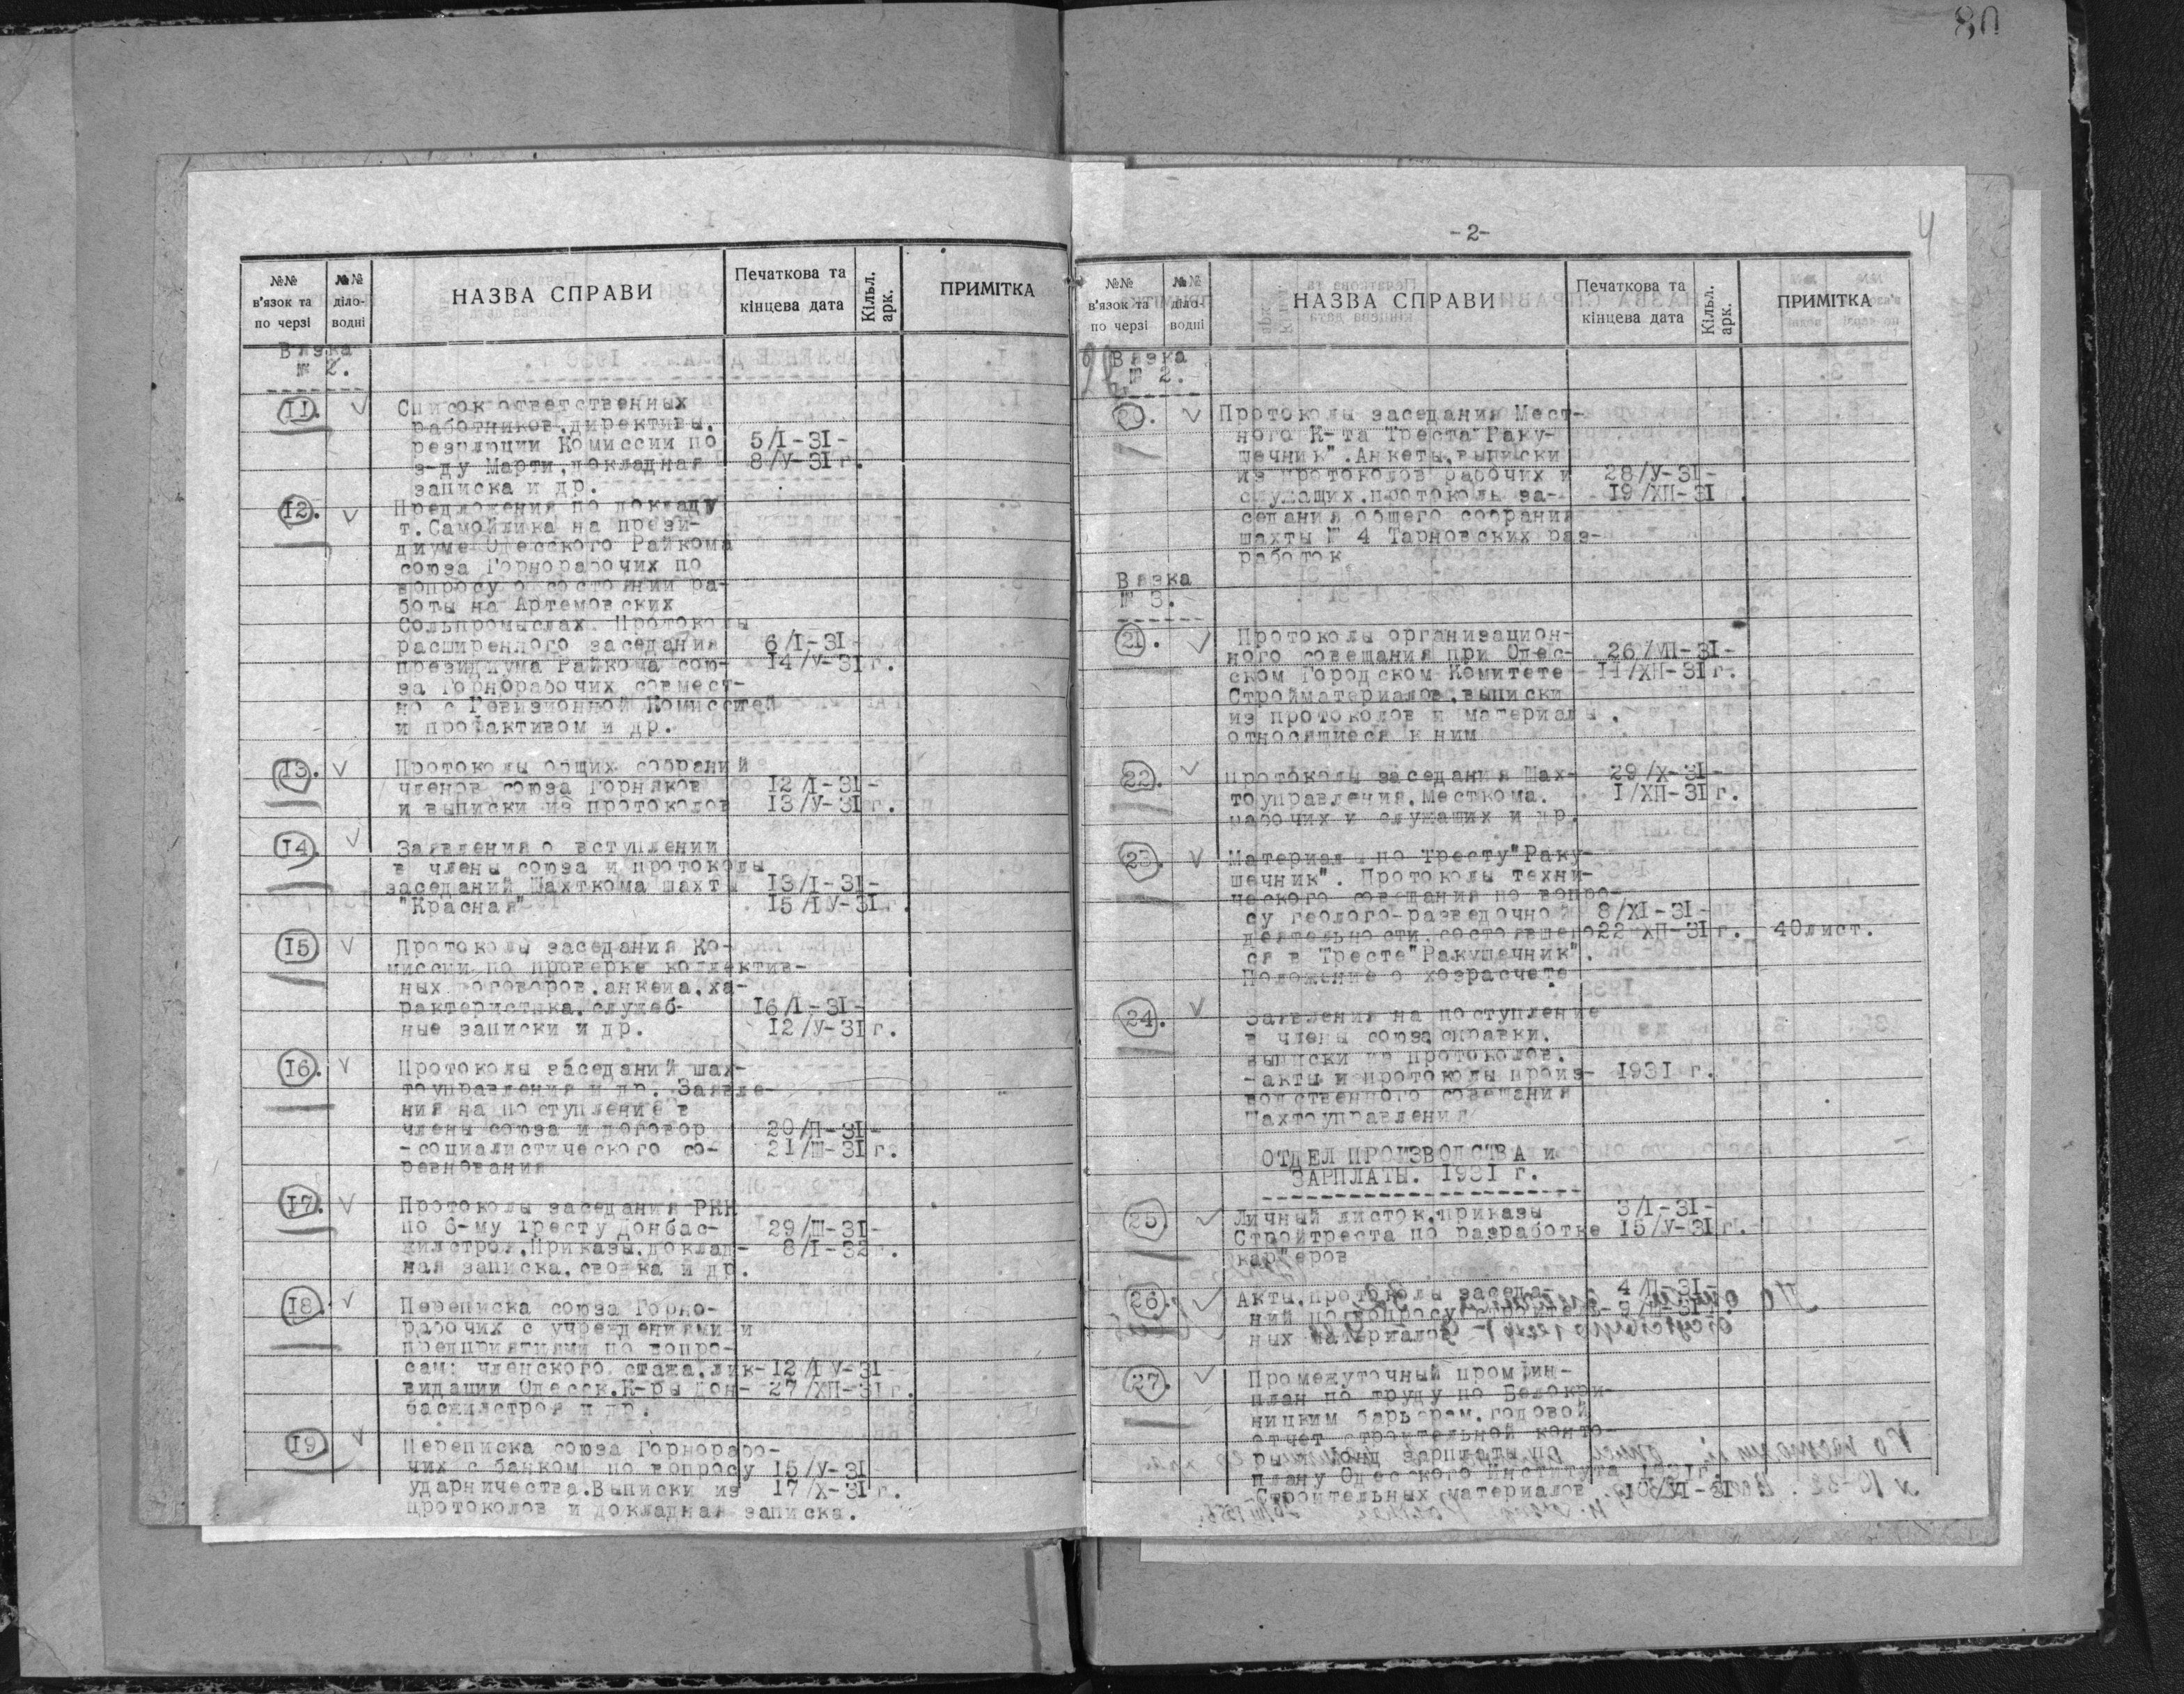 80
№№ в'язок та по черзі
№№ діло-водні
НАЗВА СПРАВИ
Печаткова та кінцева дата
Кільк. арк.
ПРИМІТКА
Вязка
№ 2.
11. Список ответственных
работников, директивы,
резолюции Комиссии по 5/I-31-
з-ду Марти, докладная 8/У-31 г.
записка и др.
12. Предложения по докладу
т. Самойлика на прези-
диуме Одесского Райкома
союза Горнорабочих по
вопросу о состоянии ра-
боты на Артемовских
Сольпромыслах. Протоколы
расширенного заседания 6/I-31-
президиума Райкома сою- 14/У-31 г.
за Горнорабочих совмест-
но с Ревизионной Комиссией
и профактивом и др.
13. Протоколы общих собраний
членов союза Горняков 12/I-31-
и выписки из протоколов 13/У-31 г.
14. Заявления о вступлении
в члены союза и протоколы
заседаний Шахткома шахты 13/I-31-
"Красная" 15/IУ-31 г.
15 Протоколы заседания Ко-
миссии по проверке коллектив-
ных договоров, анкета, ха-
рактеристика, служеб- 16/I-31-
ные записки и др. 12/У-31 г.
16. Протоколы заседаний шах-
тоуправления и др. Заявле-
ния на поступление в
члены союза и договор 20/П-31-
-социалистического со- 21/Ш-31 г.
ревнования
17. Протоколы заседания РКК
по 6-му тресту Донбас- 29/Ш-31-
жилстроя, Приказы, доклад- 8/I-32 г.
ная записка, сводка и др.
18. Переписка союза Горно-
рабочих с учреждениями и
предприятиями по вопро-
сам: членского стажа, лик- 12/IУ-31-
видации Одесск. К-ры Дон- 27/ХП-31 г.
басжилстроя и др.
19. Переписка союза Горнорабо-
чих с банком по вопросу 15/У-31
ударничества. Выписки из 17/Х-31 г.
протоколов и докладная записка.
-2-
4
№№ в'язок та по черзі
№№ діло-водні
НАЗВА СПРАВИ
Печаткова та кінцева дата
Кільк. арк.
ПРИМІТКА
Вязка
№ 2.
20. Протоколы заседания Мест-
ного К-та Треста "Раку-
шечник". Анкеты, выписки
из протоколов рабочих и 28/У-31-
служащих, протоколы за- 19/ХП-31
седания общего собрания
шахты № 4 Тарновских раз-
работок
Вязка
№ 3.
21. Протоколы организацион-
ного совещания при Одес- 26/УП-31-
ском Городском Комитете 11/ХП-31 г.
Стройматериалов, выписки
из протоколов и материалы,
относящиеся к ним
22. Протоколы заседания Шах- 29/Х-31-
тоуправления, Месткома, 1/ХП-31 г.
рабочих и служащих и др.
23. Материал по Тресту "Раку-
шечник". Протоколы техни-
ческого совещания по вопро-
су геолого-разведочной 8/ХI-31-
деятельности, состоявшего 22-ХП-31 г. 40 лист.
ся в Тресте "Ракушечник".
Положение о хозрасчете
24. Заявления на поступление
в члены союза, справки,
выписки из протоколов,
-акты и протоколы произ- 1931 г.
водственного совещания
Шахтоуправления
ОТДЕЛ ПРОИЗВОДСТВА и
ЗАРПЛАТЫ. 1931 г.
25. Личный листок, приказы 3/I-31-
Стройтреста по разработке 15/У-31 г.
кар"еров
26. Акты, протоколы заседа- 4/П-31-
ний по вопросу
ных материалов
27. Промежуточный промфин-
план по труду по Белокри-
ницким карьерам, годовой
отчет строительной конто-
ры, фонд зарплаты по
плану Одесского Института
Строительных материалов 10/ХI-31